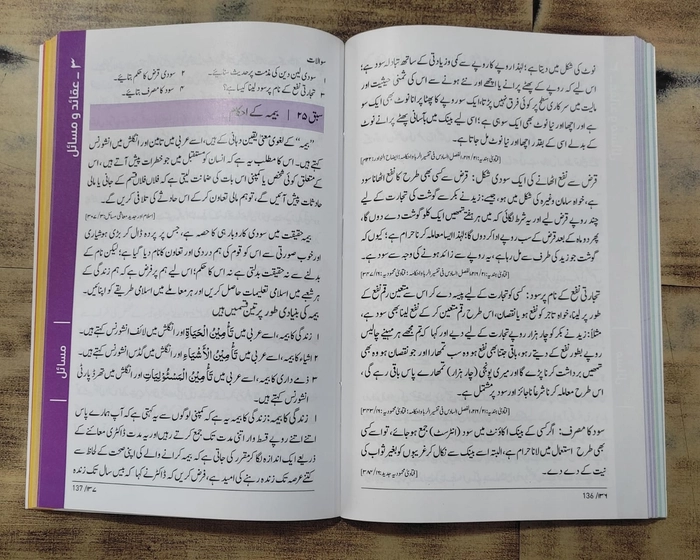 نوٹ کی شکل میں دیتا ہے؛ لہٰذا روپے کا روپے سے کمی و زیادتی کے ساتھ تبادلہ سود ہے؛
اس لیے کہ روپے کے پھٹے پرانے یا اچھے اور نئے ہونے سے اس کی ثمنی حیثیت اور
مالیت میں سرکاری سطح پر کوئی فرق نہیں پڑتا، ایک سو روپے کا پھٹا پرانا نوٹ بھی ایک سو
ہے اور اچھا اور نیا نوٹ بھی ایک سو ہی ہے؛ اسی لیے بینک میں بآسانی پھٹے پرانے نوٹ
کے بدلے اسی کے بقدر اچھا اور نیا نوٹ مل جاتا ہے۔
قرض سے نفع اٹھانے کی ایک سودی شکل: قرض سے کسی بھی طرح کا نفع اٹھانا سود
ہے، خواہ سامان وغیرہ کی شکل میں ہو، جیسے: زید نے بکر سے گوشت کی تجارت کے لیے
چند روپے قرض لیے اور یہ شرط لگائی کہ میں ہر ہفتے تمھیں ایک کلو گوشت دے دوں گا،
پھر دو ماہ کے بعد قرض کے سب روپے ادا کروں گا؛ لہٰذا ایسا معاملہ کرنا حرام ہے؛ کیوں کہ
گوشت جو زید کی طرف سے مل رہا ہے، یہ روپے سے زائد ہونے کی وجہ سے سود ہے۔
تجارتی نفع کے نام پر سود: کسی کو تجارت کے لیے پیسہ دے کر اس سے متعین رقم نفع کے
طور پر لینا، خواہ تاجر کو نفع ہو یا نقصان، اس طرح رقم متعین کر کے نفع لینا بھی سود ہے،
مثلاً: زید نے بکر کو چار ہزار روپے تجارت کے لیے دیے اور کہا کہ تم مجھے ہر مہینے چالیس
روپے بطور نفع کے دیتے رہو، باقی جتنا بھی نفع ہو وہ سب تمھارا اور جو نقصان ہو وہ بھی
تمھیں برداشت کرنا پڑے گا اور میری پونجی (چار ہزار) تمھارے پاس باقی رہے گی،
اس طرح معاملہ کرنا شرعاً ناجائز اور سود پر مشتمل ہے۔
سود کا مصرف: اگر کسی کے بینک اکاؤنٹ میں سود (انٹرسٹ) جمع ہو جائے، تو اسے کسی
بھی طرح استعمال میں لانا حرام ہے، البتہ اسے بینک سے نکال کر غریبوں کو بغیر ثواب کی
نیت کے دے دے۔
136 /۱۳۶
۳- عقائد و مسائل
مسائل
سوالات
۱ سودی لین دین کی مذمت پر حدیث سنایئے۔ ۲ سودی قرض کا حکم بتایئے۔
۳ تجارتی نفع کے نام پر سود لینا کیسا ہے؟ ۴ سود کا مصرف بتایئے۔
سبق ۲۵ | بیمہ کے احکام
”بیمہ“ کے لغوی معنی یقین دہانی کے ہیں، اسے عربی میں تامین اور انگلش میں انشورنس
کہتے ہیں۔ اس کا مطلب یہ ہے کہ انسان کو مستقبل میں جو خطرات پیش آتے ہیں، اس
کے متعلق کوئی شخص یا کمپنی اس بات کی ضمانت لیتی ہے کہ فلاں فلاں قسم کے جانی یا مالی
حادثات پیش آئیں گے، تو ہم مالی تعاون کر کے اس حادثے کی تلافی کریں گے۔
بیمہ حقیقت میں سودی کاروبار ہی کا حصہ ہے، جس پر پردہ ڈال کر بڑی ہوشیاری
اور خوب صورتی سے اس کو قوم کی ہم دردی اور تعاون کا نام دیا گیا ہے؛ لیکن نام کے
بدلنے سے نہ حقیقت بدلتی ہے نہ اس کا حکم؛ اس لیے ہم پر فرض ہے کہ ہم زندگی کے
ہر شعبے میں اسلامی تعلیمات حاصل کریں اور ہر معاملے میں اسلامی طریقے کو اپنائیں۔
بیمہ کی بنیادی طور پر تین قسمیں ہیں
۱ زندگی کا بیمہ، اسے عربی میں تَأْمِيْنُ الْحَيَاةِ اور انگلش میں لائف انشورنس کہتے ہیں۔
۲ اشیاء کا بیمہ، اسے عربی میں تَأْمِيْنُ الْأَشْيَاءِ اور انگلش میں گڈس انشورنس کہتے ہیں۔
۳ ذمے داری کا بیمہ، اسے عربی میں تَأْمِيْنُ الْمَسْئُوْلِيَّاتِ اور انگلش میں تھرڈ پارٹی
انشورنس کہتے ہیں۔
۱ زندگی کا بیمہ: زندگی کا بیمہ یہ ہے کہ کمپنی لوگوں سے یہ کہتی ہے کہ آپ ہمارے پاس
اتنے اتنے روپے قسط وار اتنی مدت تک جمع کرتے رہیں اور یہ مدت ڈاکٹری معائنے کے
ذریعے ایک اندازہ لگا کر مقرر کی جاتی ہے کہ بیمہ کرانے والے کی اپنی صحت کے لحاظ سے
کتنے عرصہ تک زندہ رہنے کی امید ہے، فرض کریں کہ ڈاکٹر نے کہا کہ بیس سال تک زندہ
137 /۱۳۷